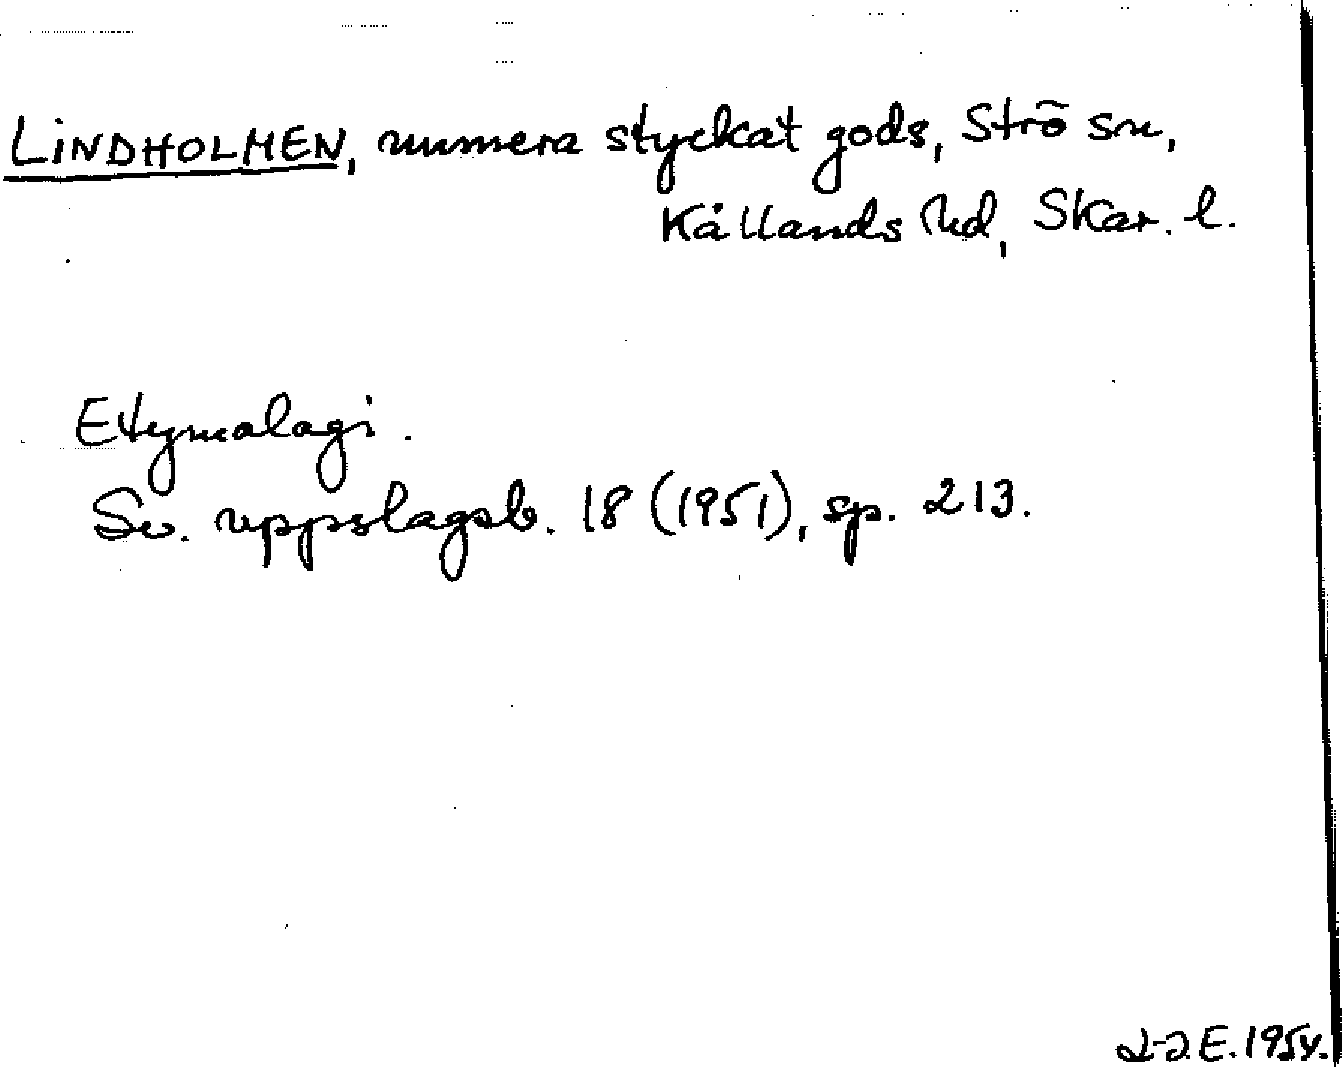 LINDHOLMEN, numera styckat gods, Strö sn,
Kållands hd, Skar. l.
Etymologi.
Sv. uppslagsb. 18 (1951), sp. 213.
E. 1954.